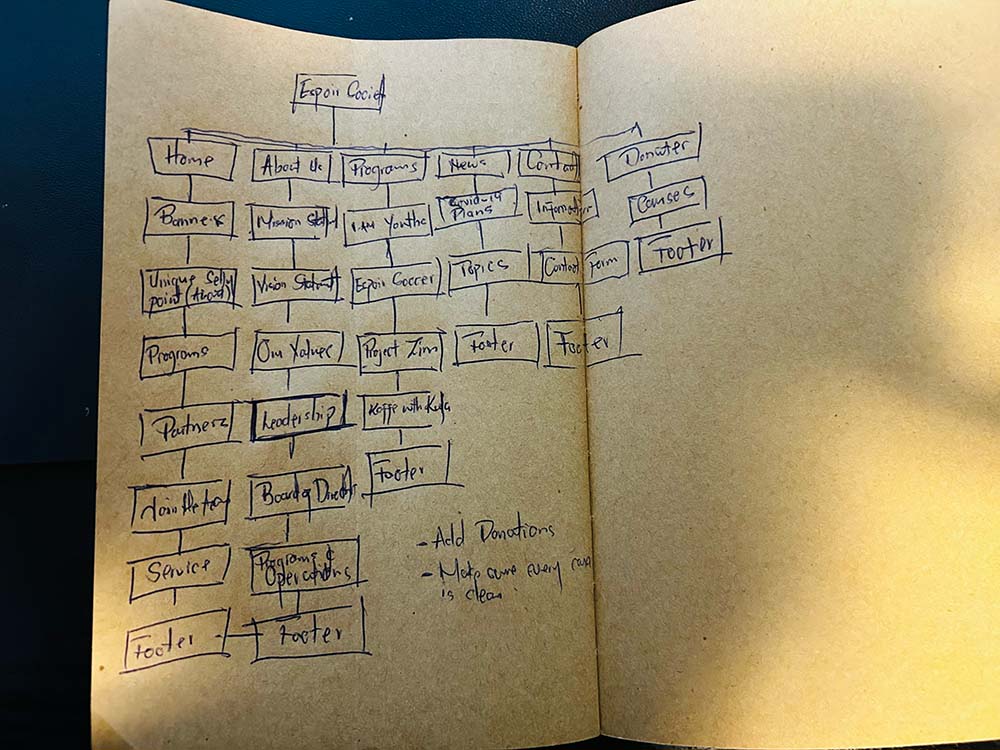 Espoir
Home
About Us
Programs
News
Contact
Donater
Banners
Mission
I AM Youth
Covid-19
Plans
Causes
Unique
point (About)
Vision
Espoir Soccer
Topics
Contact Form
Footer
Programs
Our Values
Project Zim
Footer
Footer
Partners
Leadership
Koffe with Kula
Footer
Join the
Board of
Service
Programs &
Operations
Footer
Footer
- Add Donations
- Make sure every
is clean